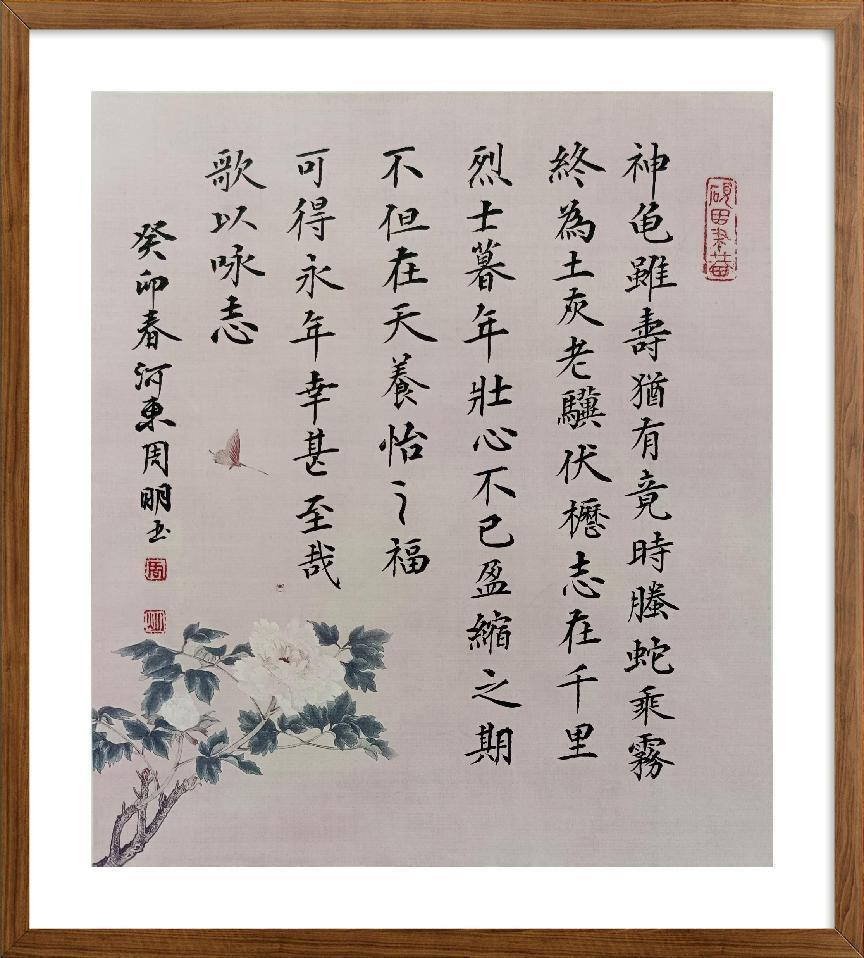 神龜雖壽猶有竟時螣蛇乘霧
終為土灰老驥伏櫪志在千里
烈士暮年壯心不已盈縮之期
不但在天養怡之福
可得永年幸甚至哉
歌以咏志
癸卯春河東周明書
周